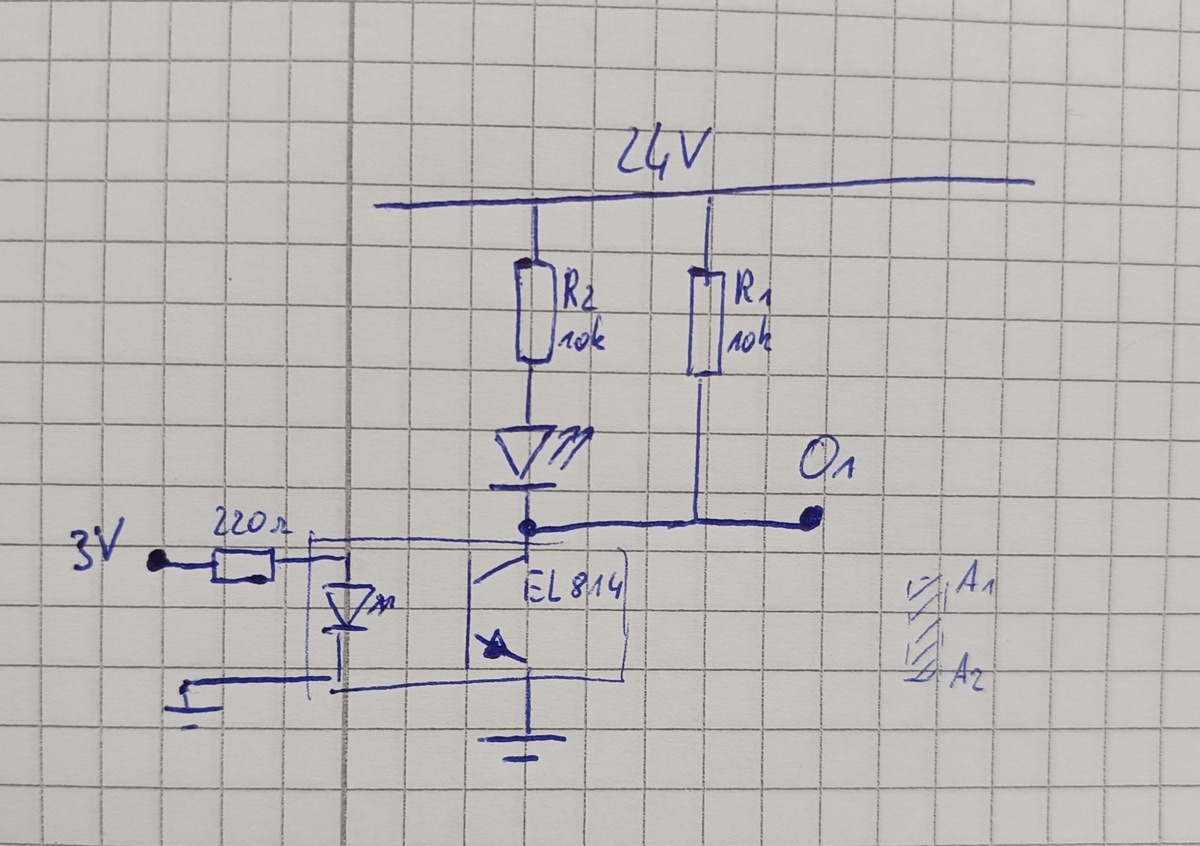 24V
R2
10k
R1
10k
O1
220Ω
3V
EL814
A1
A2